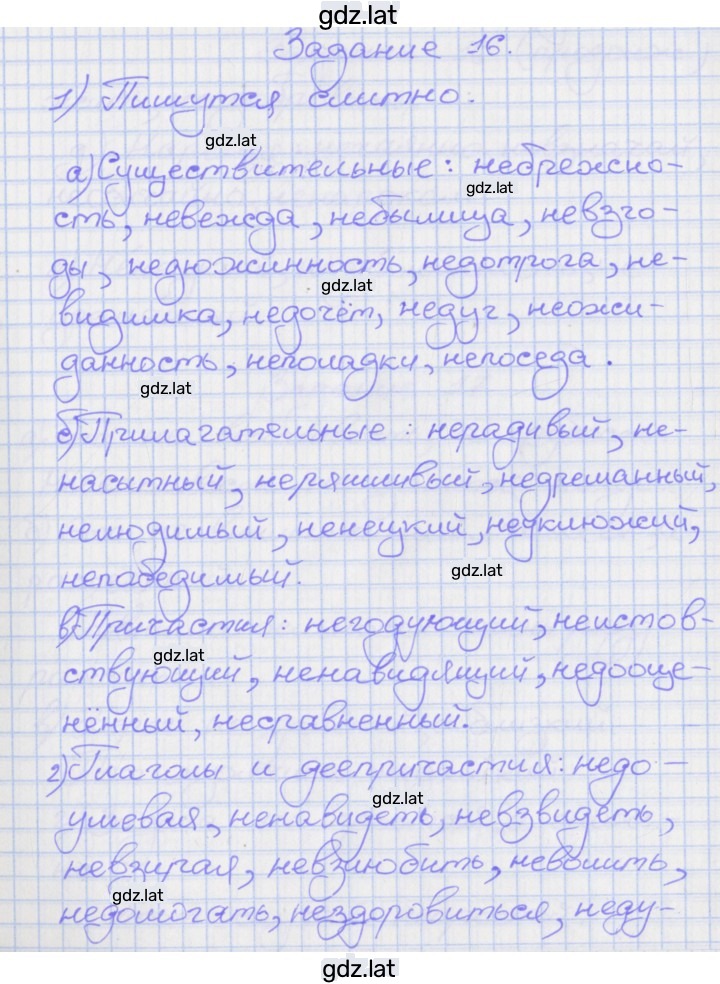 gdz.lat
Задание 16.
1) Пишутся слитно.
gdz.lat
а) Существительные: небрежно-
gdz.lat
сть, невежда, небылица, невзго-
ды, недюжинность, недотрога, не-
gdz.lat
видимка, недочёт, недуг, неожи-
данность, неполадки, непоседа.
gdz.lat
б) Прилагательные: нерадивый, не-
насытный, неряшливый, недреманный,
нелюдимый, ненецкий, неуклюжий,
gdz.lat
непобедимый.
в) Причастия: негодующий, неистов-
gdz.lat
ствующий, ненавидящий, недооце-
нённый, несравненный.
г) Глаголы и деепричастия: недо-
gdz.lat
умевая, ненавидеть, невзвидеть,
невзирая, невзлюбить, неволить,
gdz.lat
недомогать, нездоровиться, неду-
gdz.lat